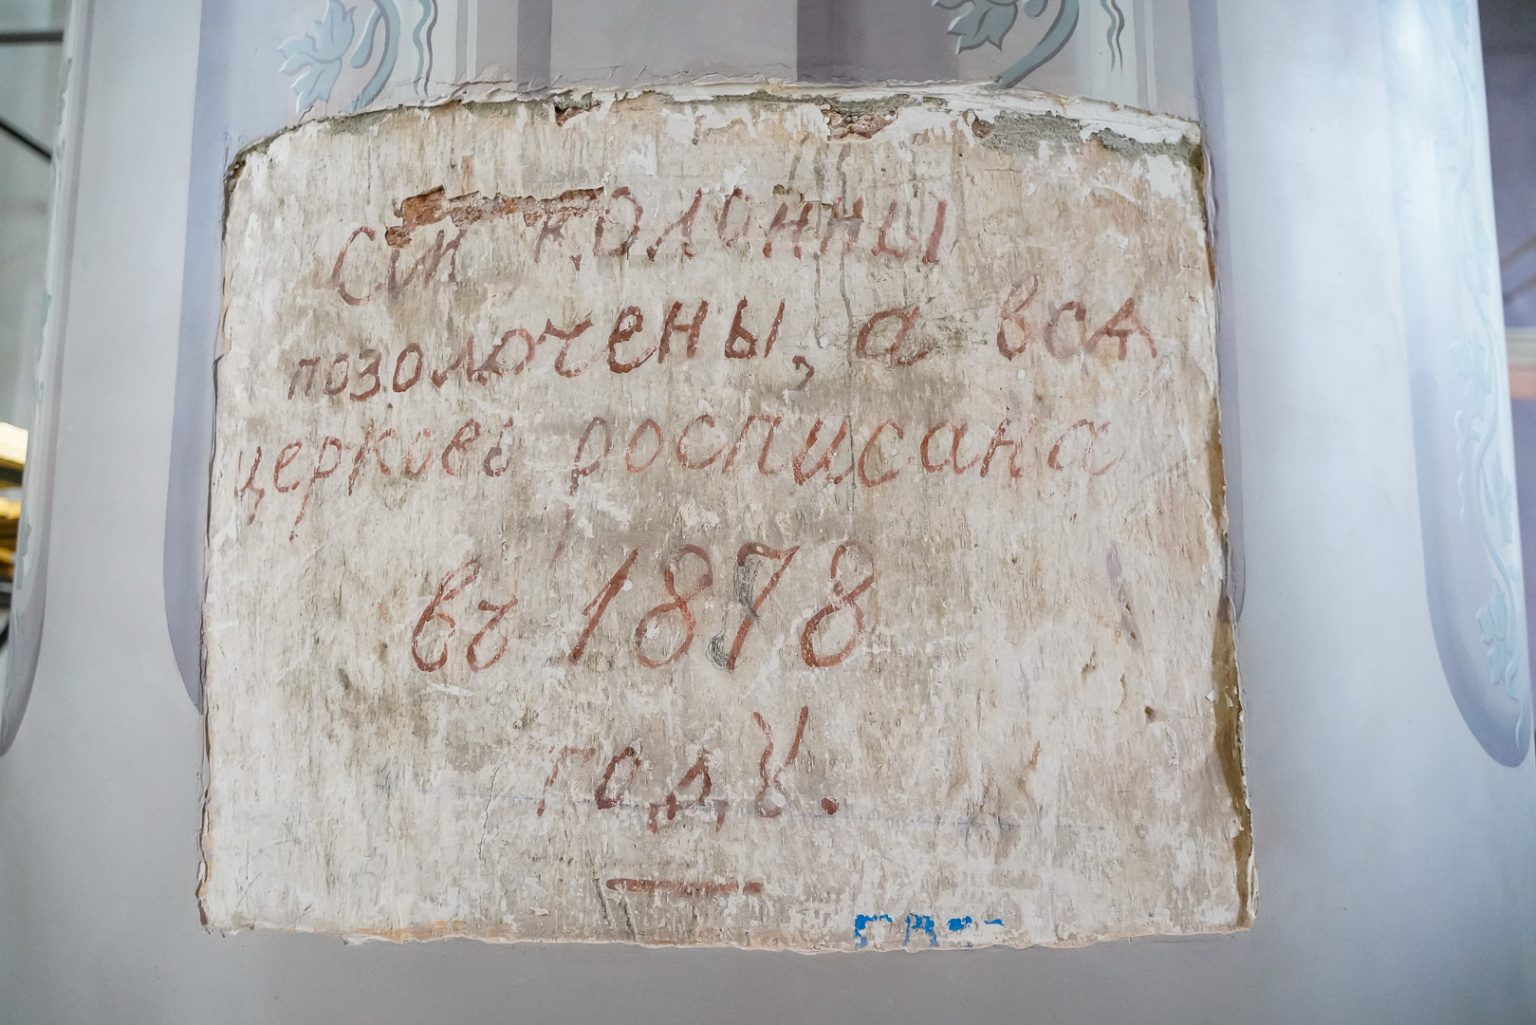 Сии колонны
позолочены, а вся
церковь росписана
въ 1878
году.